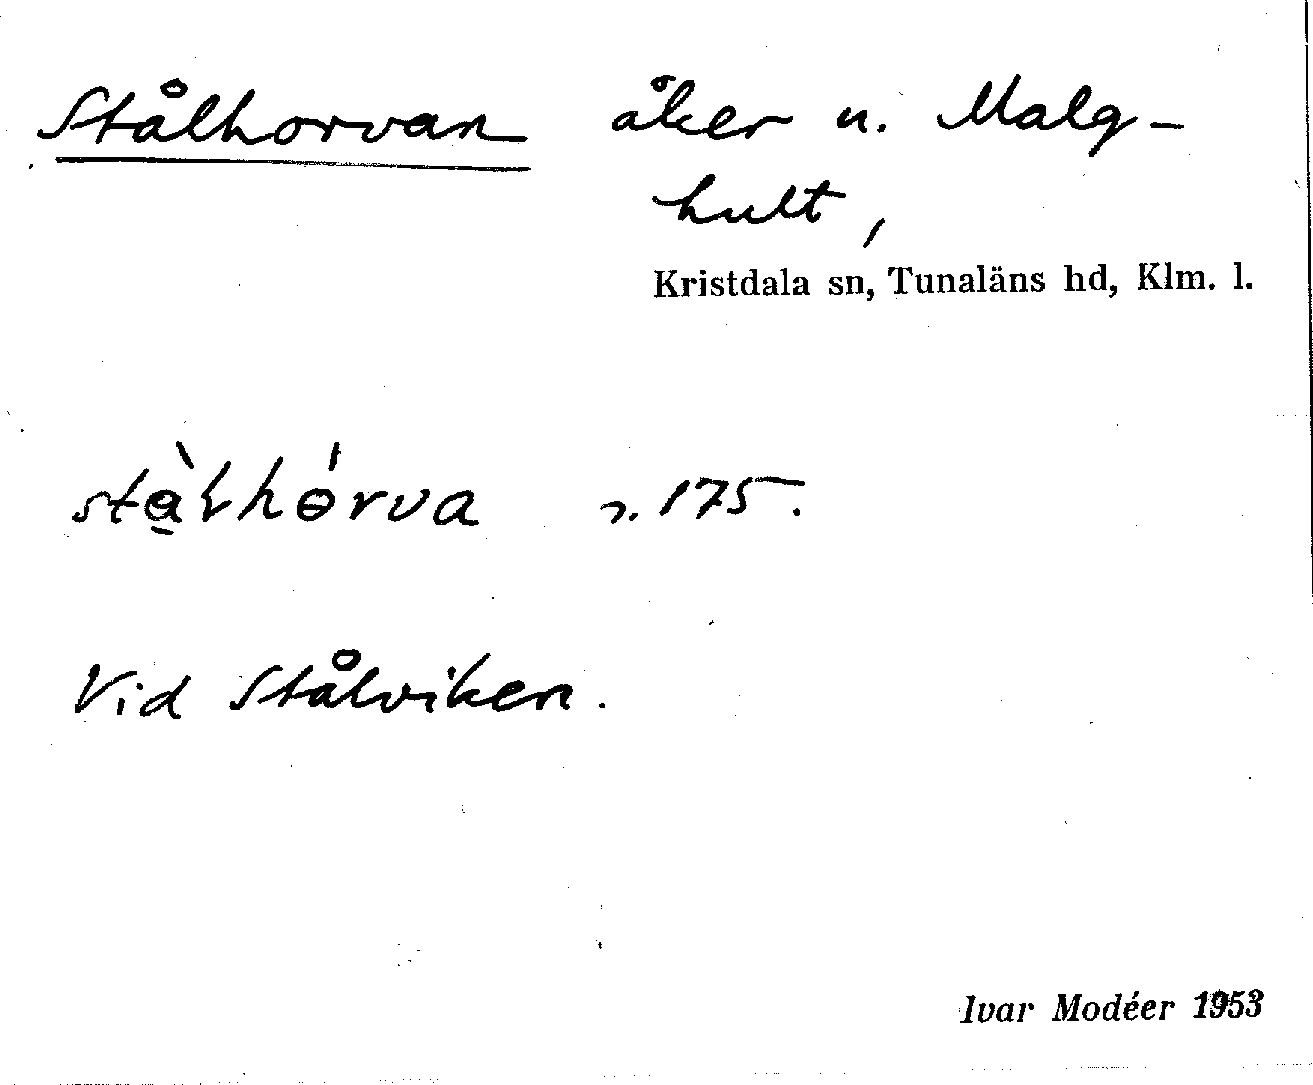 Stålhorvan åker u. Malg-
hult,
Kristdala sn, Tunaläns hd, Klm. l.
r. 175.
Vid Stålviken.
Ivar Modéer 1953